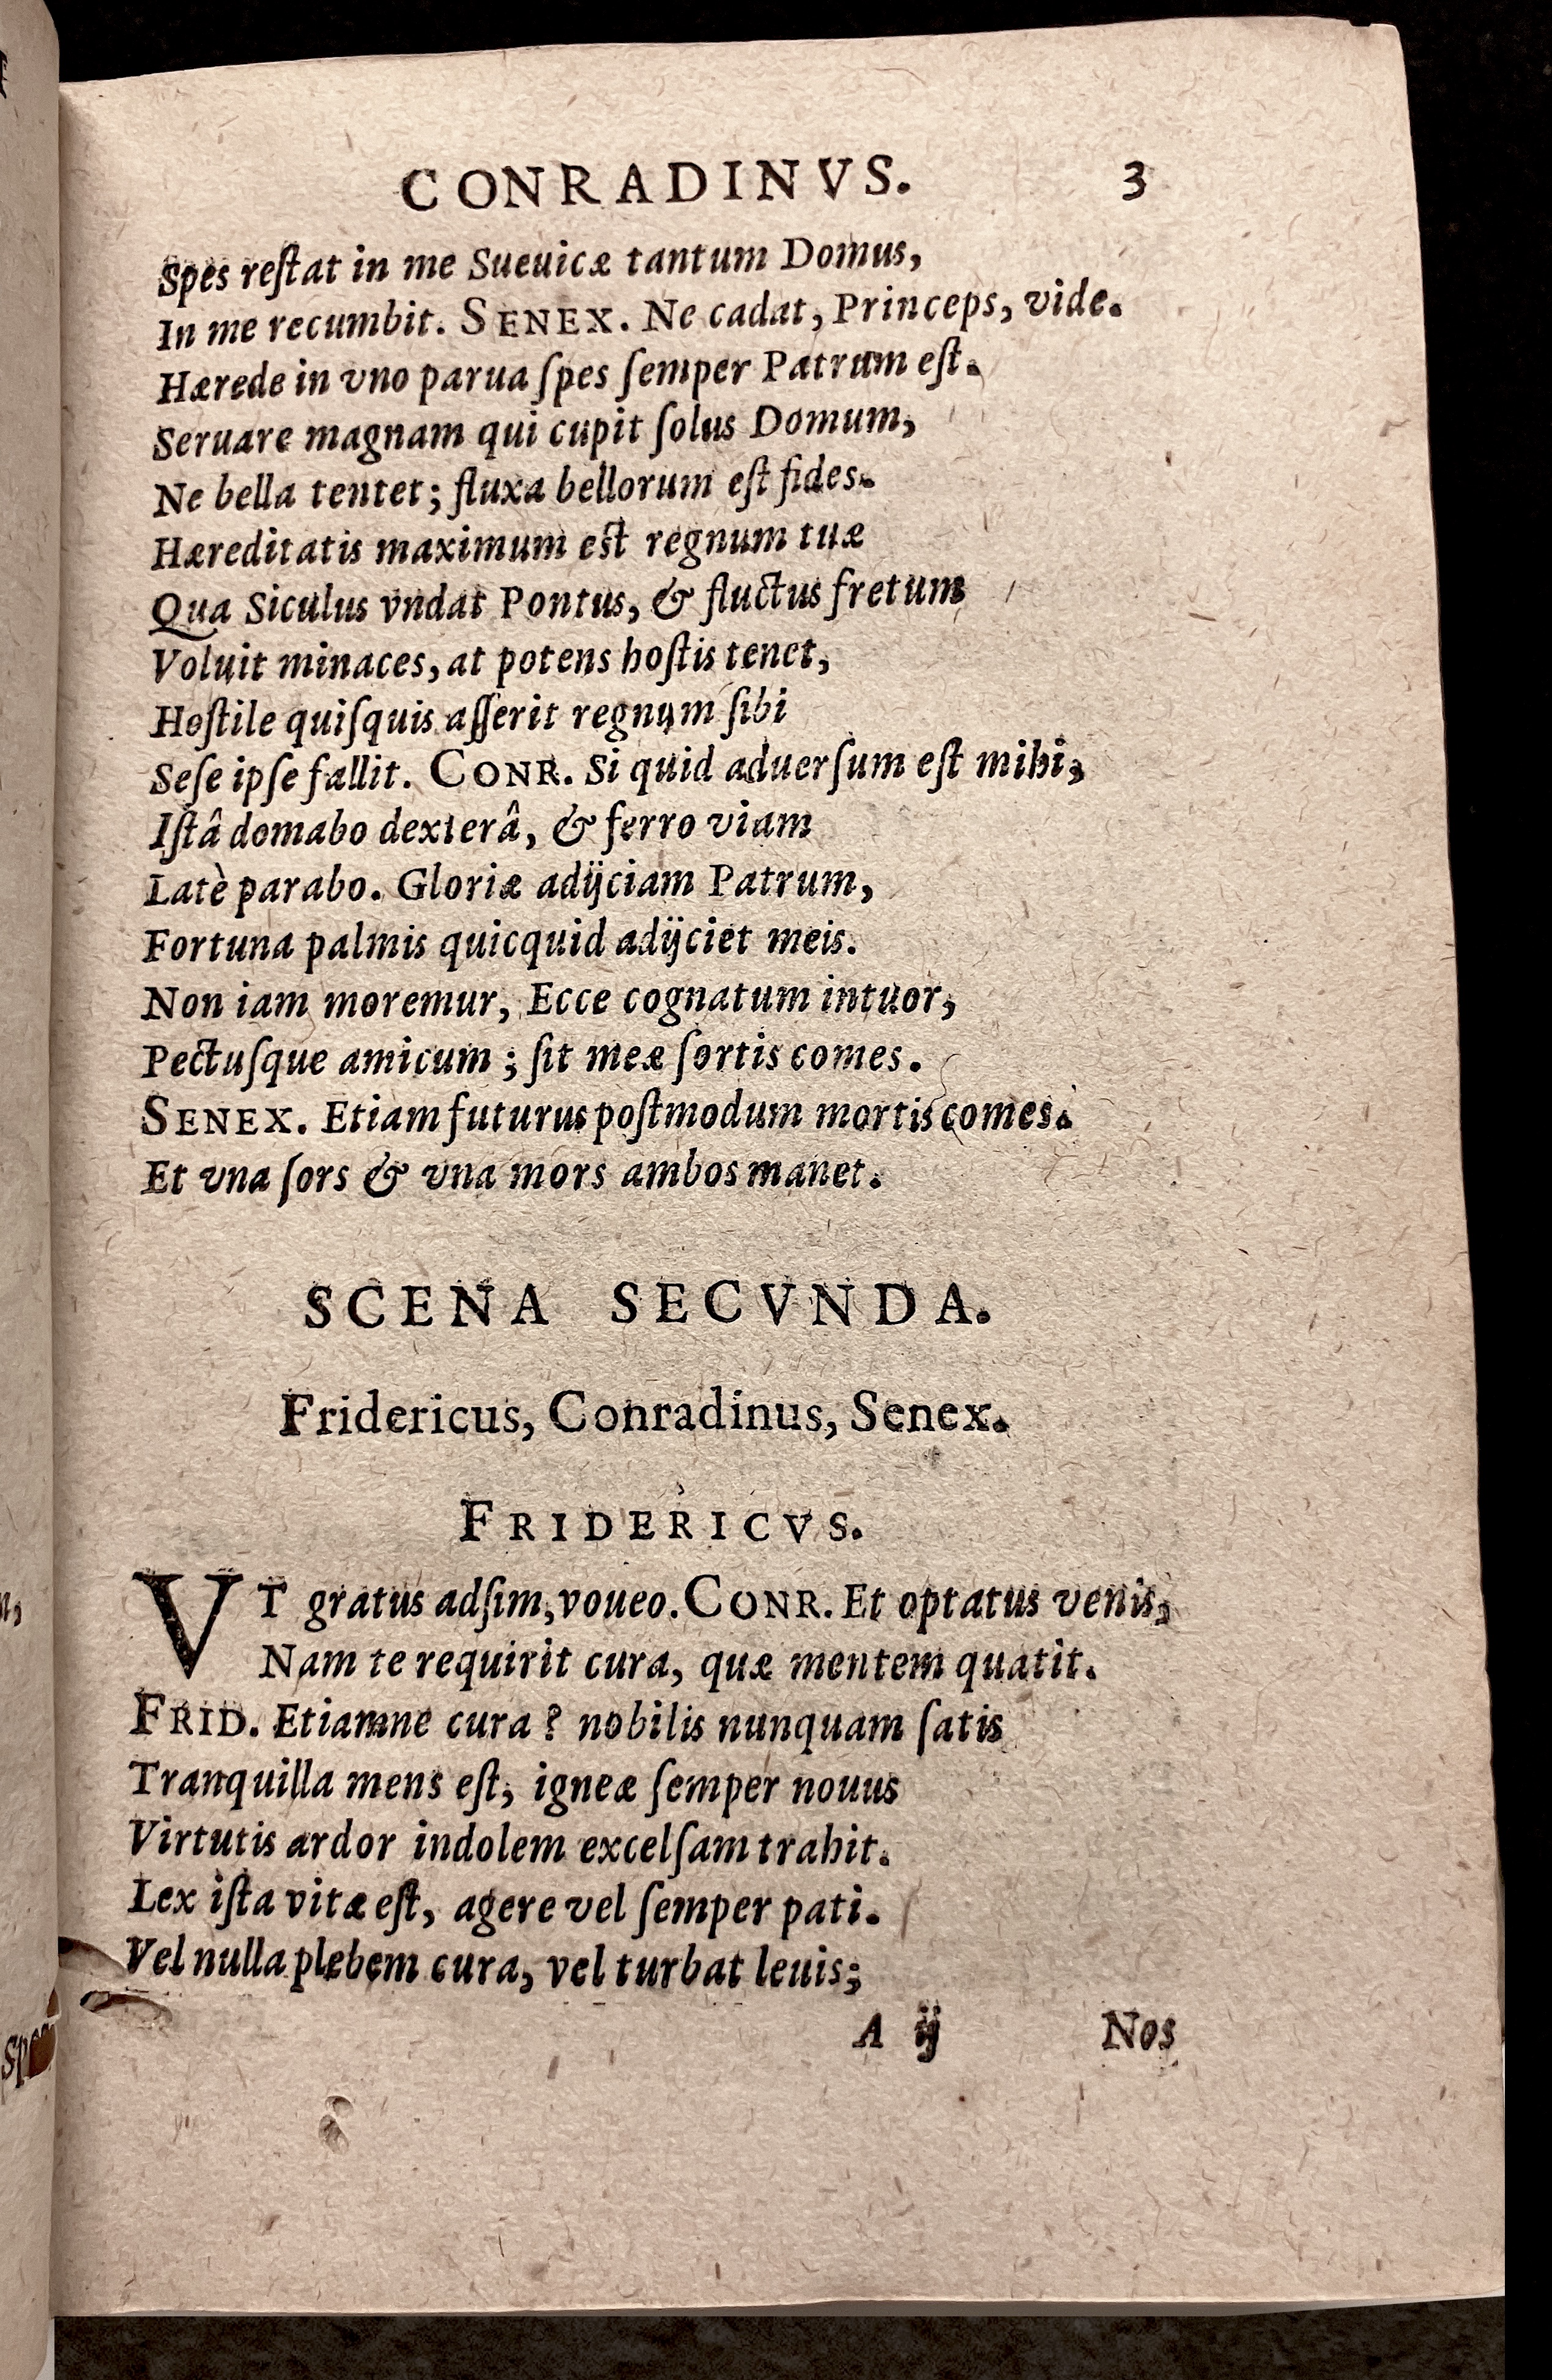 CONRADINVS. 3
Spes reſtat in me Sueuicæ tantum Domus,
In me recumbit. SENEX. Ne cadat, Princeps, vide.
Hærede in vno parua ſpes ſemper Patrum eſt.
Seruare magnam qui cupit ſolus Domum,
Ne bella tentet; fluxa bellorum eſt fides.
Hæreditatis maximum eſt regnum tuæ
Qua Siculus vndat Pontus, & fluctus fretum
Voluit minaces, at potens hoſtis tenet,
Hoſtile quiſquis aſſerit regnum ſibi
Seſe ipſe fallit. CONR. Si quid aduerſum eſt mihi,
Iſtâ domabo dexterâ, & ferro viam
Latè parabo. Gloriæ adijciam Patrum,
Fortuna palmis quicquid adijciet meis.
Non iam moremur, Ecce cognatum intuor,
Pectuſque amicum; ſit meæ ſortis comes.
SENEX. Etiam futurus poſtmodum mortis comes.
Et vna ſors & vna mors ambos manet.
SCENA SECVNDA.
Fridericus, Conradinus, Senex.
FRIDERICVS.
VT gratus adſim, voueo. CONR. Et optatus venis,
Nam te requirit cura, quæ mentem quatit.
FRID. Etiamne cura? nobilis nunquam ſatis
Tranquilla mens eſt, igneæ ſemper nouus
Virtutis ardor indolem excelſam trahit.
Lex iſta vitæ eſt, agere vel ſemper pati.
Vel nulla plebem cura, vel turbat leuis;
A ij Nos